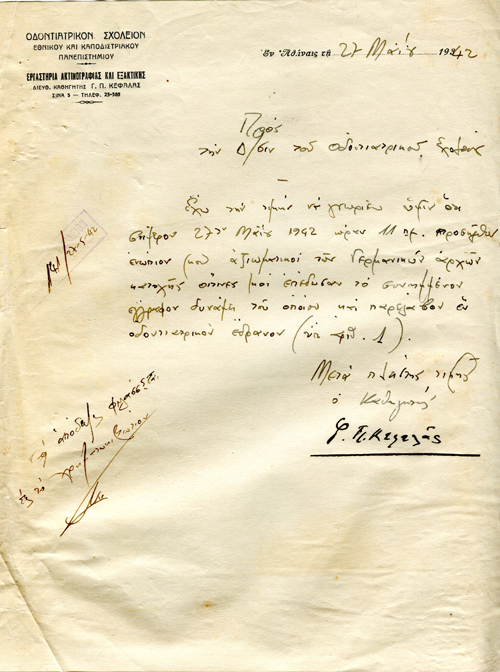 ΟΔΟΝΤΙΑΤΡΙΚΟΝ ΣΧΟΛΕΙΟΝ
ΕΘΝΙΚΟΥ ΚΑΙ ΚΑΠΟΔΙΣΤΡΙΑΚΟΥ
ΠΑΝΕΠΙΣΤΗΜΙΟΥ
ΕΡΓΑΣΤΗΡΙΑ ΑΚΤΙΝΟΓΡΑΦΙΑΣ ΚΑΙ ΕΞΑΚΤΙΚΗΣ
ΔΙΕΥΘ. ΚΑΘΗΓΗΤΗΣ Γ. Π. ΚΕΦΑΛΑΣ
ΣΙΝΑ 5 — ΤΗΛΕΦ. 25-585
Ἐν Ἀθήναις τῇ 27 Μαΐου 1942
Πρὸς
τὴν Δ/σιν τοῦ Ὀδοντιατρικοῦ Σχολείου
Ἔχω τὴν τιμὴν νὰ γνωρίσω ὑμῖν ὅτι
σήμερον 27ην Μαΐου 1942 ὥραν 11 π.μ. προσῆλθον
ἐνώπιόν μου ἀξιωματικοὶ τῶν Γερμανικῶν ἀρχῶν
κατοχῆς οἵτινες μοὶ ἐπέδωσαν τὸ συνημμένον
ἔγγραφον δυνάμει τοῦ ὁποίου καὶ παρέλαβον ἓν
ὀδοντιατρικὸν ἕδρανον (ὑπ' ἀριθ. 1).
Μετὰ πλείστης τιμῆς
ὁ Καθηγητὴς
Γ. Π. Κεφαλᾶς
141/27-5-42
Ἡ ἀπόδειξις